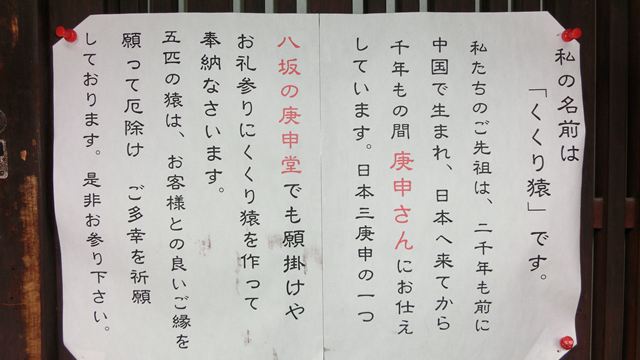 私の名前は
「くくり猿」です。
私たちのご先祖は、二千年も前に
中国で生まれ、日本へ来てから
千年もの間 庚申さんにお仕え
しています。日本三庚申の一つ
八坂の庚申堂でも願掛けや
お礼参りにくくり猿を作って
奉納なさいます。
五匹の猿は、お客様との良いご縁を
願って厄除け ご多幸を祈願
しております。是非お参り下さい。